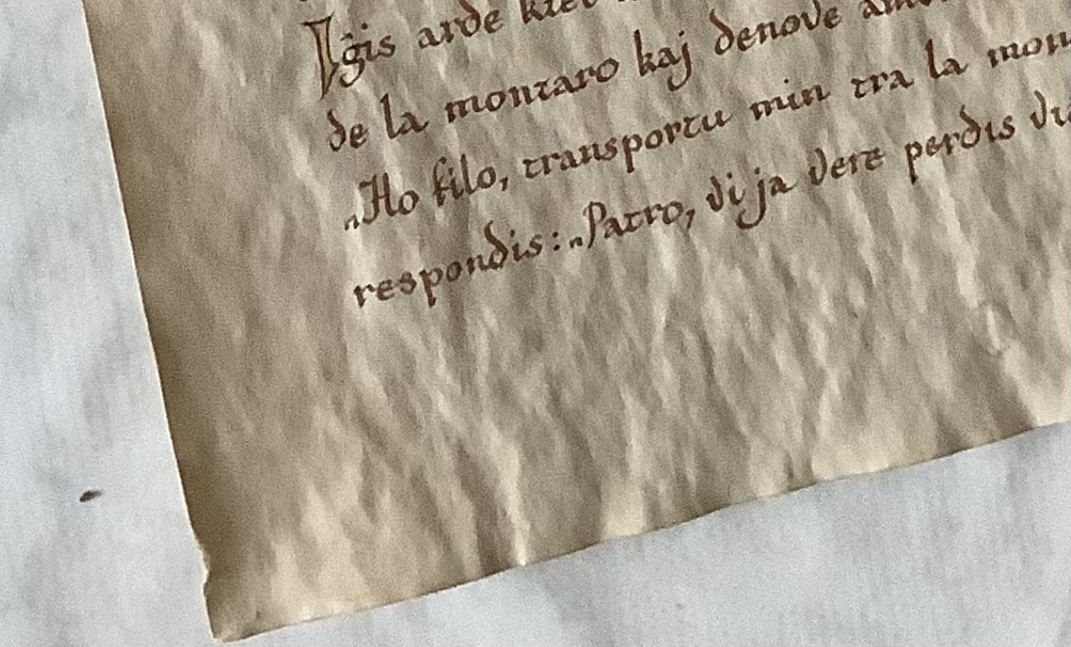 Iĝis arde
de la montaro kaj denove
„Ho filo, transportu min tra la
respondis: „Patro, vi ja vere perdis